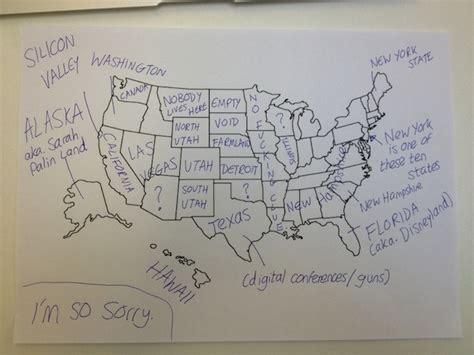 SILICON
VALLEY
WASHINGTON
CANADA
NOBODY
LIVES HERE
EMPTY
VOID
NEW YORK
STATE
ALASKA
aka. Sarah
Palin Land
CALIFORNIA
LAS
VEGAS
NORTH
UTAH
UTAH
SOUTH
UTAH
?
FARMLAND
DETROIT
NO FUCKING CLUE
?
Illinois
New York
is one of
these ten
states
New Hampshire
New Hampshire
FLORIDA
(aka. Disneyland)
Texas
(digital conferences/guns)
HAWAII
I'm so sorry.